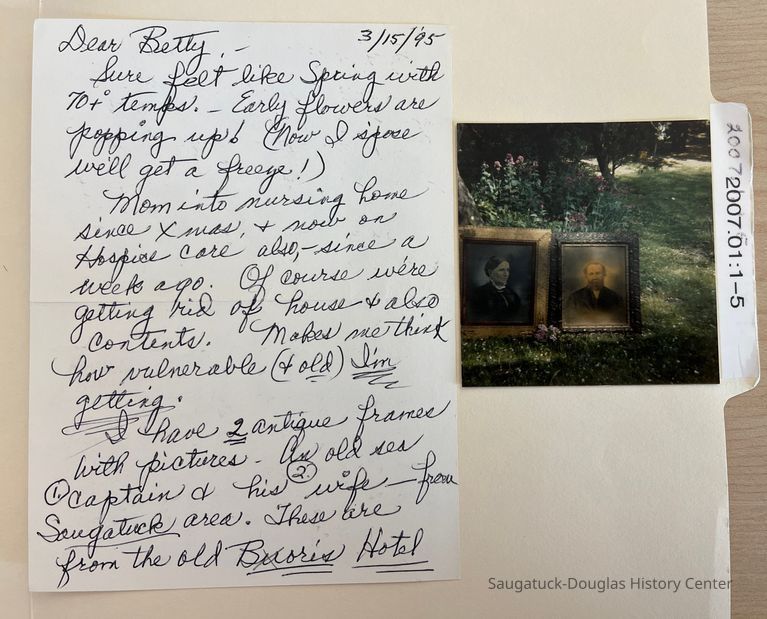 Dear Betty, -
3/15/95
Sure felt like Spring with
70+° temps. - Early flowers are
popping up! (Now I spose
we'll get a freeze!)
Mom into nursing home
since Xmas, & now on
Hospice care also, - since a
week ago. Of course we're
getting rid of house & also
contents. Makes me think
how vulnerable (& old) I'm
getting.
I have 2 antique frames
with pictures - An old sea
① captain & his ② wife - from
Saugatuck area. These are
from the old Hotel
2007
2007.01:1-5
Saugatuck-Douglas History Center